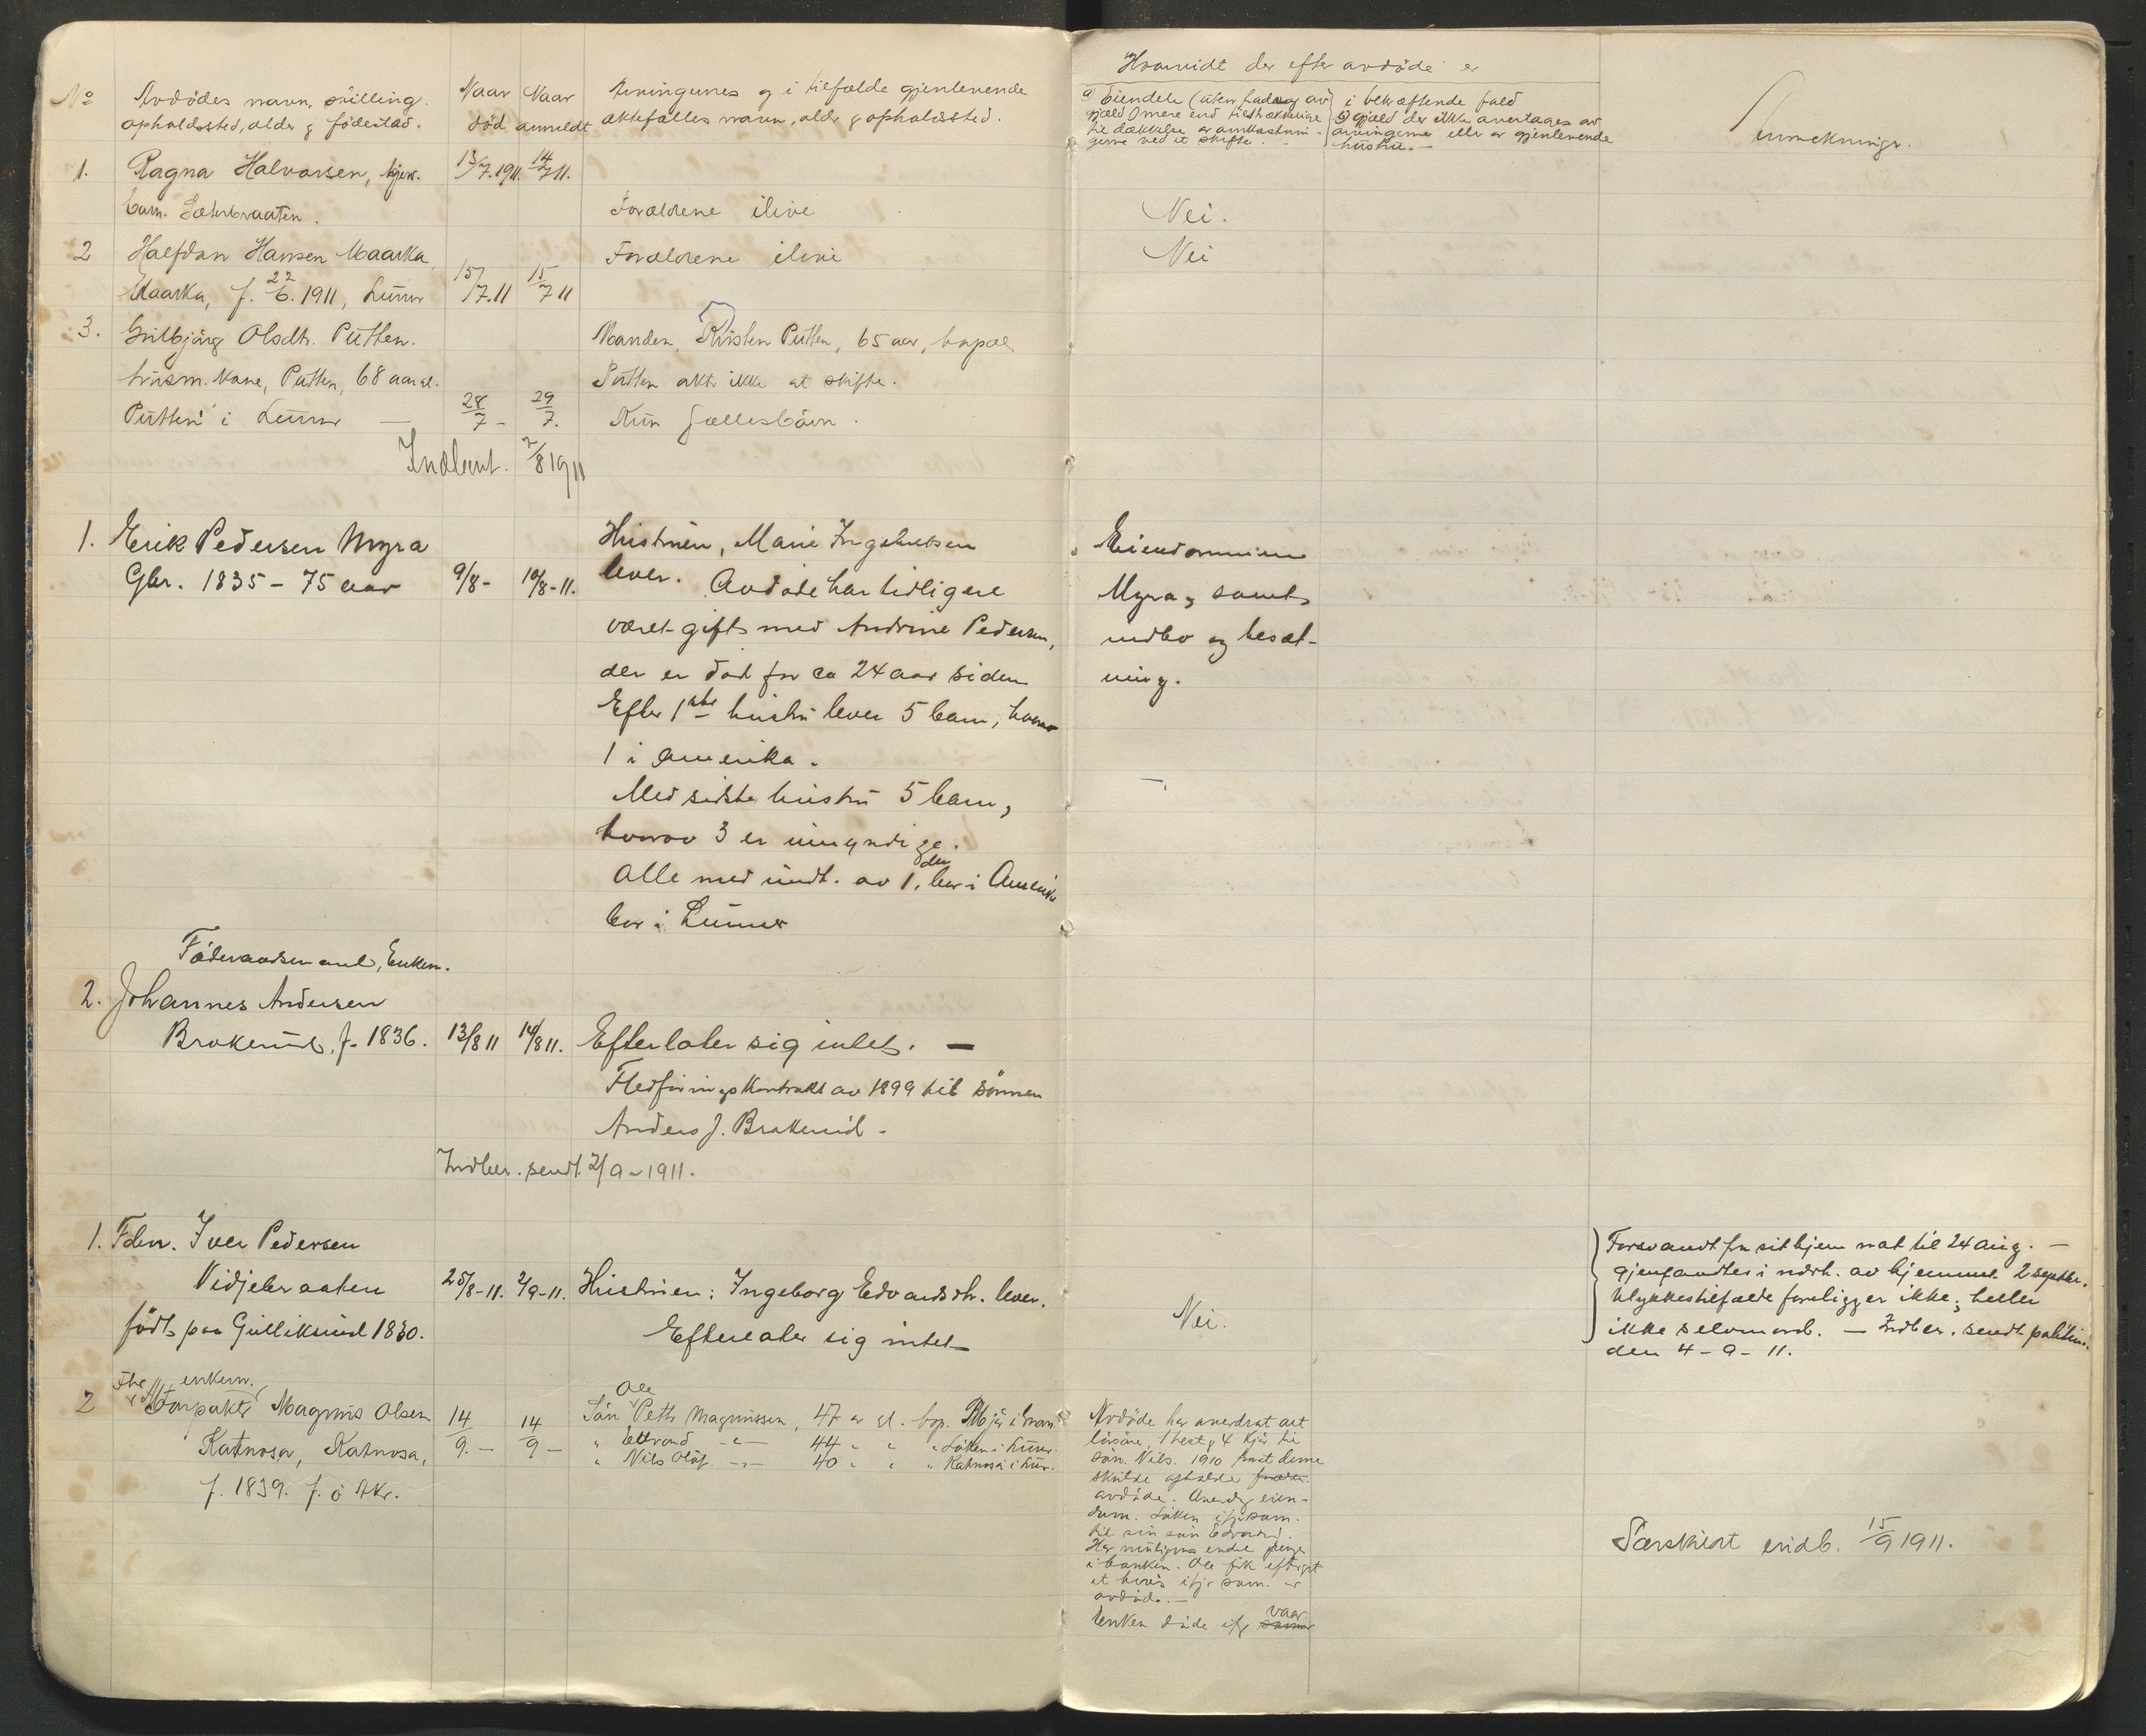 No
Avdödes navn, stilling.
opholdssted, alder & födested.
Naar
död
Naar
anmeldt
Arvingernes og i tilfælde gjenlevende
ektefælles navn, alder & opholdssted.
Hvorvidt der efter avdöde er
a) Eiendele (uten fradrag av
gjæld) mere end tilstrækkelige
til dækkelse av omkostnin-
gerne ved et skifte.
i bekræftende fald
b) gjæld der ikke overtages av
arvingerne eller av gjenlevende
hustru.
Anmerkninger.
1. Ragna Halvorsen,
barn. Sæterbraaten.
13/7.1911. 14/7 11.
Forældrene ilive
Nei.
2 Halfdan Hansen Maarka,
Maarka, f. 22/6. 1911, Lunner
15/7.11 15/7 11
Forældrene ilive
Nei
3. Gulbjörg Olsdtr. Putten.
husm. kone, Putten, 68 aar gl.
Putten i Lunner —
28/7 - 29/7.
Manden, Kristen Putten, 65 aar, bopæl
Putten akter ikke at skifte.
Kun fællesbörn.
Indbent. 2/8 1911
1. Erik Pedersen Myra
Gbr. 1835 - 75 aar
9/8 - 10/8-11.
Hustruen, Marie Ingebretsen
lever. Avdöde har tidligere
været gift med Andrine Pedersen,
der er död for ca 24 aar siden
Efter 1ste hustru lever 5 barn, hvorav
1 i Amerika.
Med sidste hustru 5 barn,
hvorav 3 er umyndige.
Alle med undt. av 1, der bor i Amerika
bor i Lunner
Eiendommen
Myra, samt
indbo og besæt-
ning.
Föderaadsmand, Enkem.
2. Johannes Andersen
Brakerud, f. 1836.
13/8 11 14/8 11.
Efterlater sig intet. —
Fledföringskontrakt av 1899 til sönnen
Anders J. Brakerud -
Indber. sendt 2/9 - 1911.
1. Fdrv. Iver Pedersen
Vidjebraaten
födt paa Gulliksrud 1830.
25/8-11. 2/9-11.
Hustruen: Ingeborg Edvardsdtr. lever.
Efterlater sig intet
Nei.
Forsvandt fra sit hjem nat til 24 aug. -
gjenfandtes i nærh. av hjemmet 2 septbr.
Ulykkestilfælde foreligger ikke, heller
ikke selvmord. — Indber. sendt politim.
den 4 - 9 - 11.
enkem.
2 Forpakter Magnus Olsen
Katnosa, Katnosa,
f. 1839. f. ö Akr.
14/9. - 14/9 -
Ole
Sön Petter Magnussen, 47 aar gl. bop.
" Edvard -"- 44 " " " Löken i Lunner
" Nils Olaf -"- 40 " " " Katnosa i Lun.
Avdöde har overdrat alt
lösöre, 1 hest, 4 kjör til
sön Nils. 1910 mot denne
skulde opholde
avdöde. Overdrog eien-
dom. Löken ifjor som.
til sin sön Edvard.
Har muligens endel penger
i banken. Ole fik
ifjor som. av
avdöde. —
vaar
Enken döde ifj. sommer
Særskilt indb. 15/9 1911.